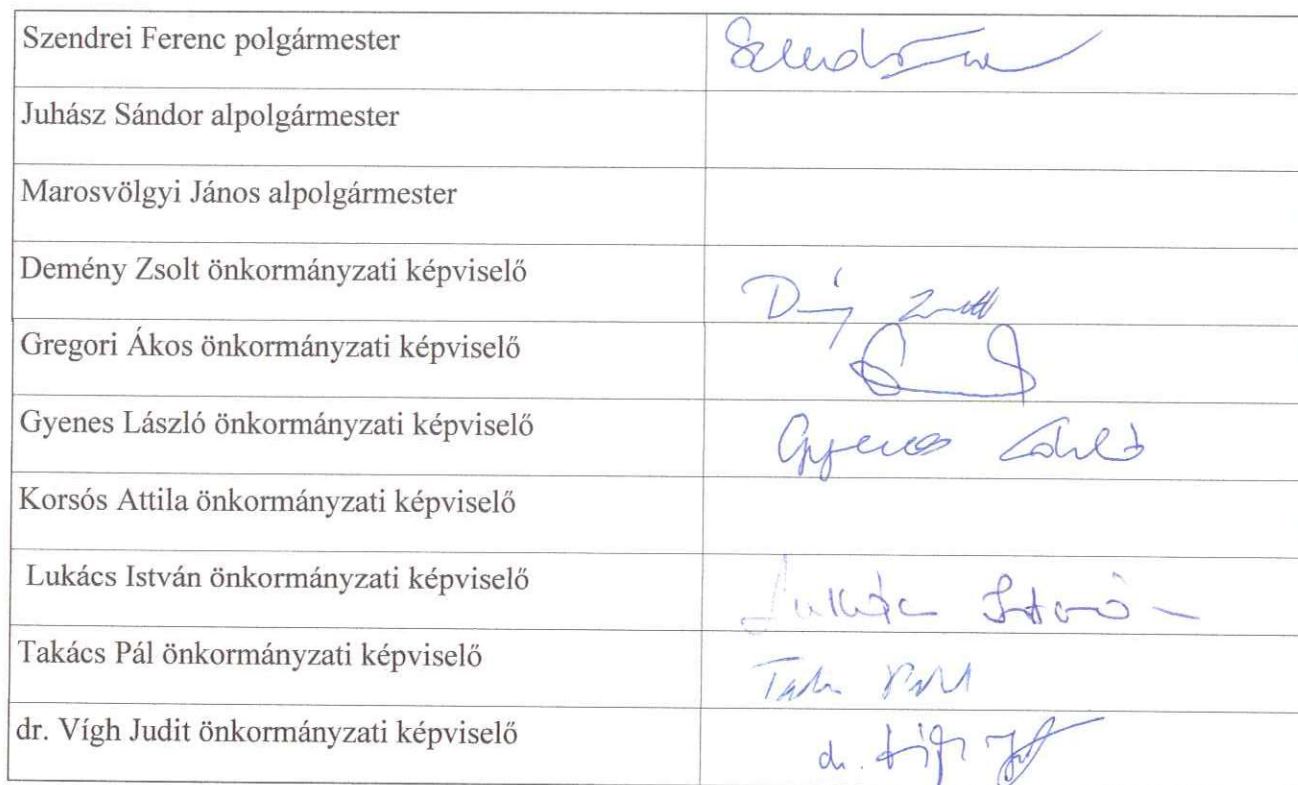 Szendrei Ferenc polgármester
Juhász Sándor alpolgármester
Marosvölgyi János alpolgármester
Demény Zsolt önkormányzati képviselő
Gregori Ákos önkormányzati képviselő
Gyenes László önkormányzati képviselő Gyenes László
Korsós Attila önkormányzati képviselő
Lukács István önkormányzati képviselő Lukács István
Takács Pál önkormányzati képviselő
dr. Vígh Judit önkormányzati képviselő dr. Vígh